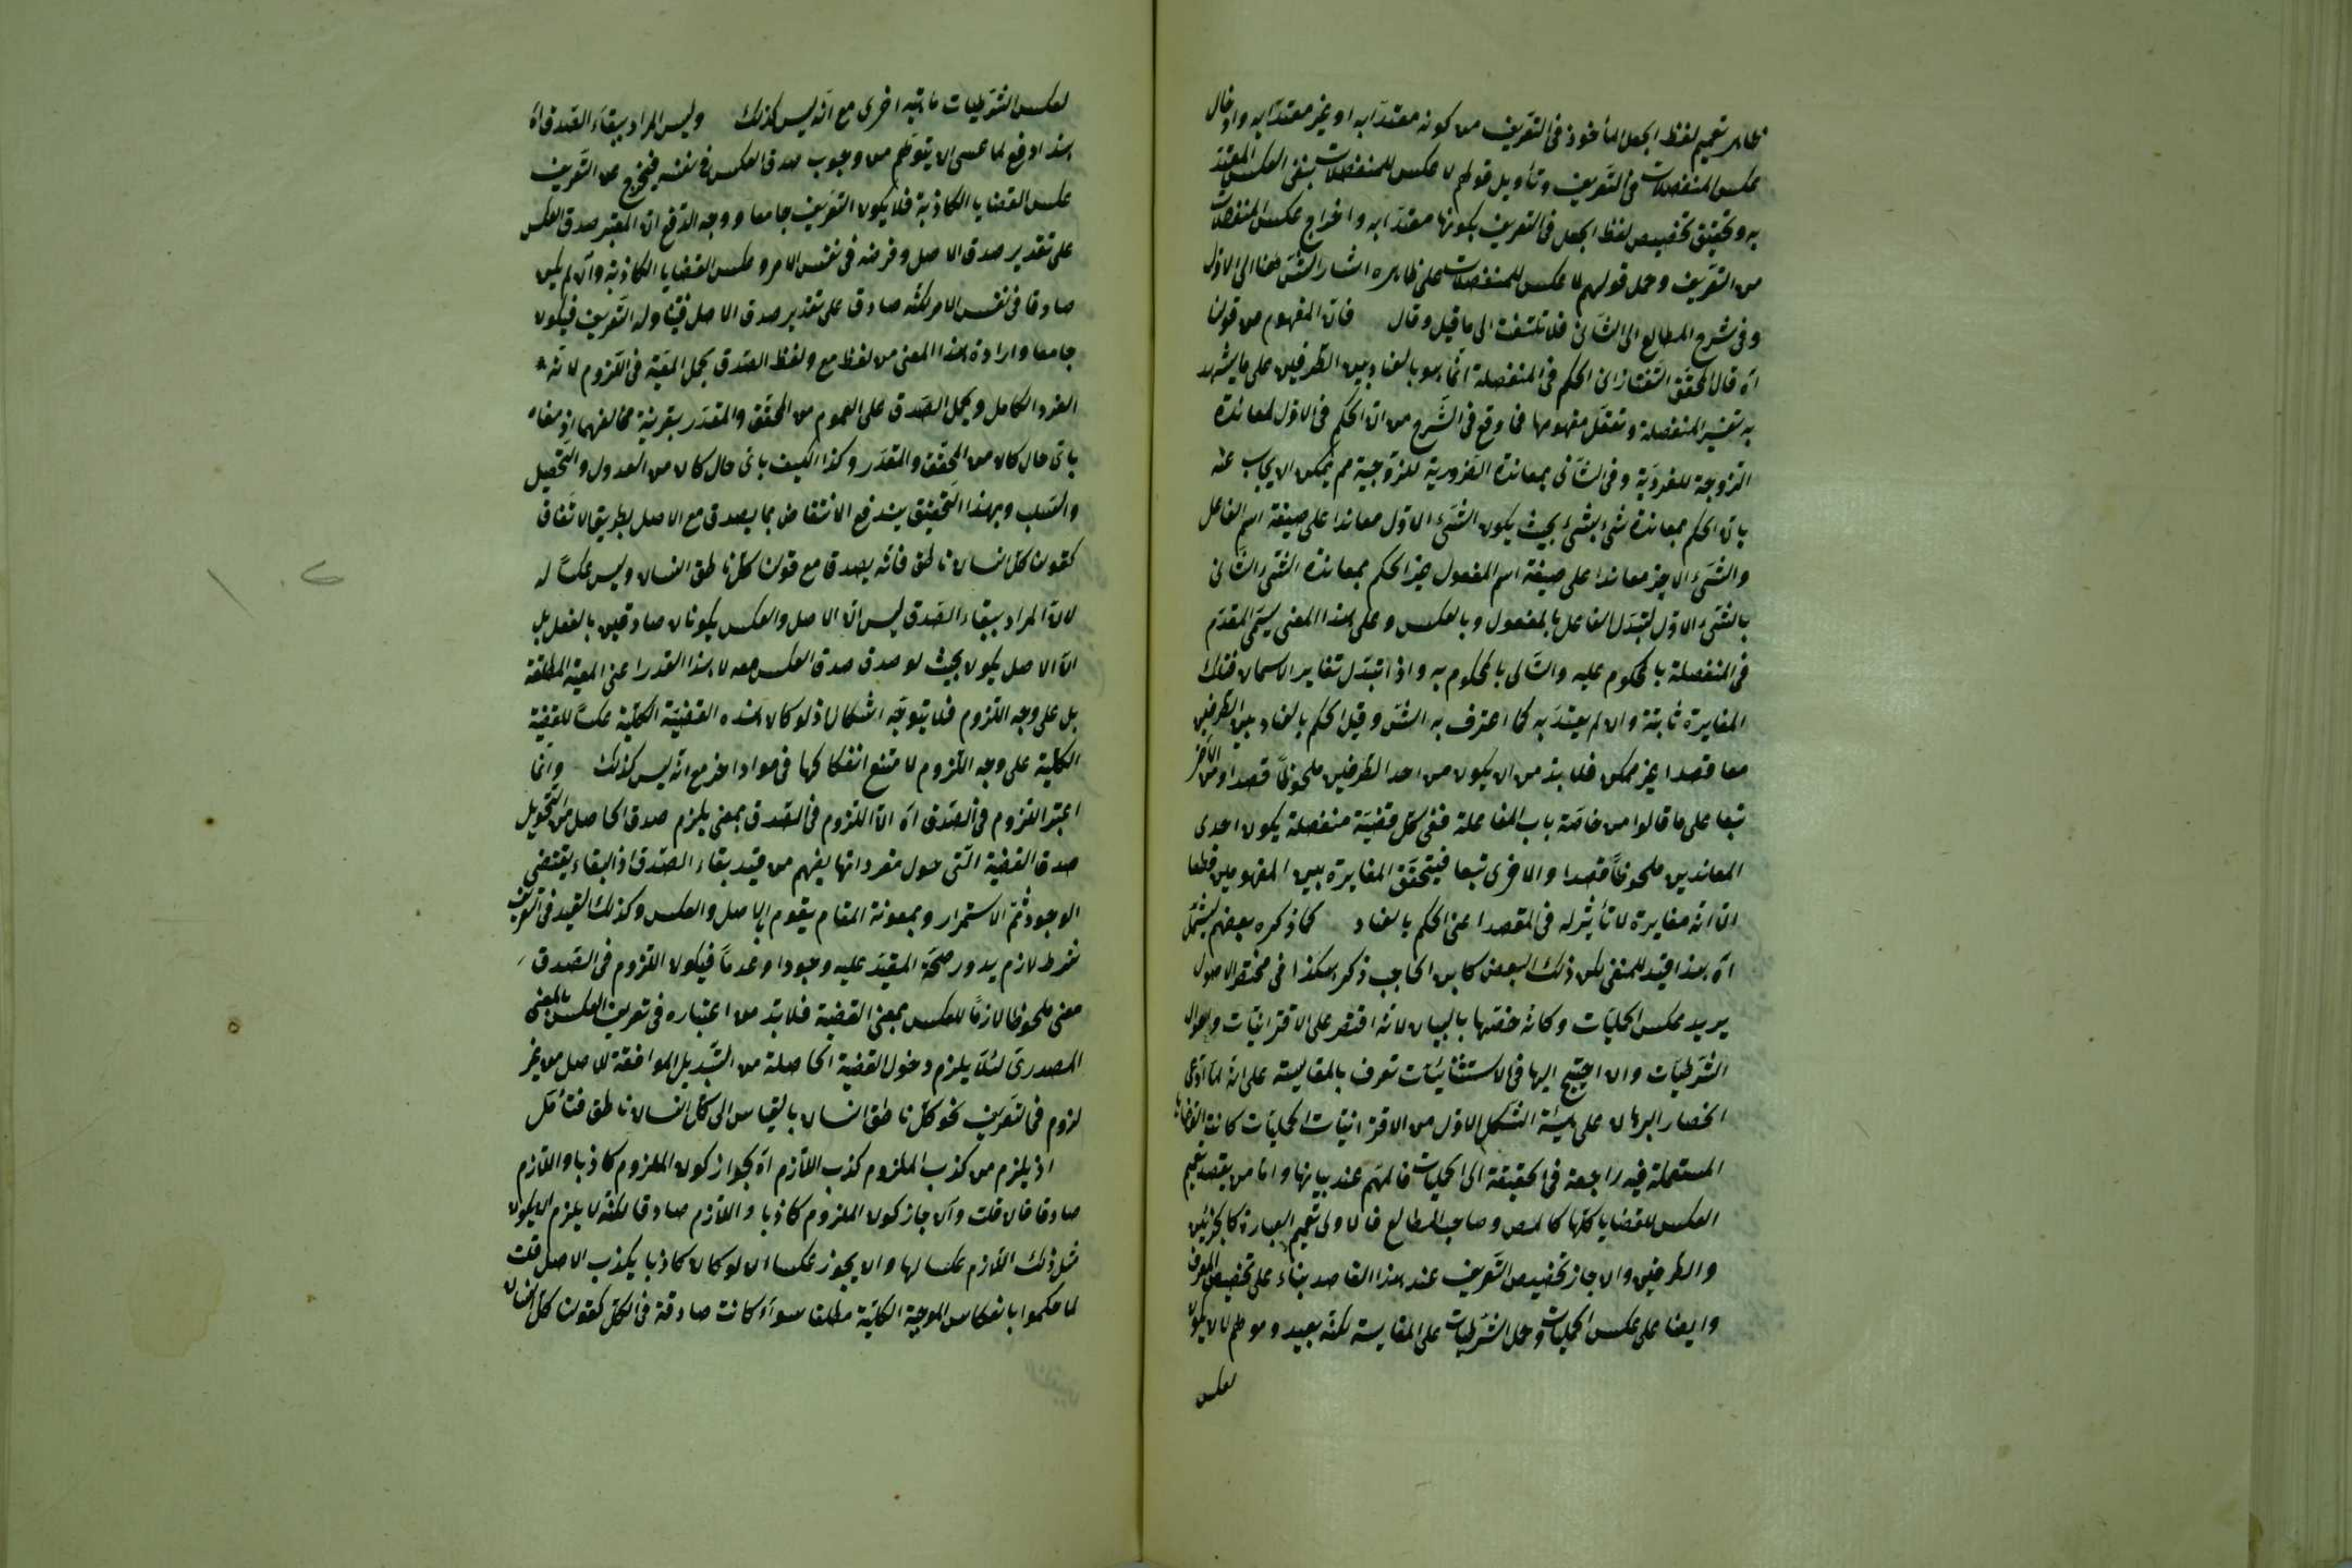 ظاهر تعميم لفظ الجعل المأخوذ فى التعريف من كونه معتدّا به او غير معتدّا به وادخال
عكس المنفصلات فى التعريف وتأويل قولهم لا عكس للمنفصلات بنفى العكس المعتدّ
به وتحقيق تخصيص لفظ الجعل فى التعريف بكونها معتدّا به واخراج عكس المنفصلات
من التعريف وحمل قولهم لا عكس للمنفصلات على ظاهره اشار الشّ ههنا الى الاوّل
وفى شرح المطالع الى الثّانى فلا تلتفت الى ما قيل وقال فانّ المفهوم من قولنا
اه قال المحقّق التّفتازانى الحكم فى المنفصلة انّما هو بالعناد بين الطّرفين على ما يشهد
به تفسير المنفصلة وتعقّل مفهومها فما وقع فى الشّرح من انّ الحكم فى الاوّل لمعاندة
الزوجة للفرديّة وفى الثّانى بمعاندة الفردية للزوجية مم يمكن ان يجاب عنه
بانّ الحكم بمعاندة شئ بشئ بحيث يكون الشّئ الاوّل معاندا على صيغة اسم الفاعل
والشّئ الاخر معاندا على صيغة اسم المفعول غير الحكم بمعاندة الشّئ الثّانى
بالشّئ الاوّل لتبدّل الفاعل بالمفعول وبالعكس وعلى هذا المعنى يسمّى المقدّم
فى المنفصلة بالمحكوم عليه والتّالى بالمحكوم به واذا تبدّل تغاير الاسمان فتلك
المغايرة ثابتة وان لم يعتدّ به كما اعترف به الشّ وقيل الحكم بالعناد بين الطّرفين
معا قصدا غير ممكن فلا بدّ من ان يكون من احد الطّرفين ملحوظا قصدا ومن الآخر
تبعا على ما قالوا من خاصّة باب المفاعلة ففى كلّ قضيّة منفصلة يكون احدى
المعاندين ملحوظا قصدا والاخرى تبعا فيتحقّق المغايرة بين المفهومين قطعا
الا انّه مغايرة لا تأثير له فى المقصد اعنى الحكم بالعناد كما ذكره بعضهم ليشمل
اه هذا قيد للمنفى لكن ذلك البعض كابن الحاجب ذكر هكذا فى مختصر الاصول
يريد عكس الحمليّات وكانّه خصّها بالبيان لانّه اقتصر على الاقترانيّات واحوال
الشّرطيّات وان احتيج اليها فى الاستثنائيّات تعرف بالمقايسة على انّه لمّا ادّعى
انحصار البرهان على هيئة الشّكل الاوّل من الاقترانيّات الحمليّات كانت القضايا
المستعملة فيه راجعة فى الحقيقة الى الحمليّات فالمهمّ عنده بيانها وامّا من يقصد تعميم
العكس للقضايا كلّها كالمص وصاحب المطالع فالاولى تعميم العبارة كالجزئين
والطرفين والا جاز تخصيص التّعريف عند هذا القاصد بناء على تخصيص المعرف
وايضا على عكس الحمليّات وحمل الشّرطيّات على المقايسة لكنّه بعيد وموهم لان يكون
لعكس
لعكس الشّرطيات ماهية اخرى مع انّه ليس كذلك وليس المراد ببقاء الصّدق اه
هذا دفع لما عسى ان يتوهّم من وجوب صدق العكس فى نفسه فيخرج عن التّعريف
عكس القضايا الكاذبة فلا يكون التّعريف جامعا ووجه الدّفع انّ المعتبر صدق العكس
على تقدير صدق الاصل وفرضه فى نفس الامر وعكس القضايا الكاذبة وان لم يكن
صادقا فى نفس الامر لكنّه صادق على تقدير صدق الاصل فيتناوله التّعريف فيكون
جامعا وارادة هذا المعنى من لفظ مع ولفظ الصّدق بحمل المعيّة فى اللّزوم لانّه
الفرد الكامل وبحمل الصّدق على العموم من المحقّق والمقدّر بقرينة مخالفهما اذ معناه
باىّ حال كان من المحقّق والمقدّر وكذا الكيف باىّ حال كان من العدول والتّحصيل
والسّلب وبهذا التّحقيق يندفع الانتقاض بما يصدق مع الاصل بطريق الاتّفاق
كقولنا كلّ انسان ناطق فانّه يصدق مع قولنا كلّ ناطق انسان وليس عكساً له
لانّ المراد ببقاء الصّدق ليس انّ الاصل والعكس يكونان صادقين بالفعل بل
انّ الاصل يكون بحيث لو صدق صدق العكس معه لا هذا القدر اعنى المعيّة المطلقة
بل على وجه اللّزوم فلا يتوجّه اشكال اذ لو كان هذه القضيّة الكليّة عكساً للقضية
الكليّة على وجه اللّزوم لامتنع انفكاكها فى مواد اخر مع انّه ليس كذلك وانّما
اعتبر اللّزوم فى الصّدق اه انّ اللّزوم فى الصّدق بمعنى يلزم صدق الحاصل من التّحويل
صدق القضية الّتى حول مفرداتها يفهم من قيد بقاء الصّدق اذ البقاء يقتضى
الوجود ثمّ الاستمرار وبمعونة المقام يقوم بالاصل والعكس وكذلك القيد فى التّعريف
شرط لازم يدور صحّة المقيّد عليه وجودا وعدماً فيكون اللّزوم فى الصّدق
معنى ملحوظا لازماً للعكس بمعنى القضية فلا بدّ من اعتباره فى تعريف العكس بالمعنى
المصدرىّ لئلّا يلزم دخول القضيّة الحاصلة من التّبديل الموافقة للاصل من غير
لزوم فى التّعريف نحو كلّ ناطق انسان بالقياس الى كلّ انسان ناطق فتأمّل
اذ يلزم من كذب الملزوم كذب اللّازم اه لجواز كون الملزوم كاذبا واللّازم
صادقا فان قلت وان جاز كون الملزوم كاذبا واللّازم صادقا لكنّه لا يلزم ان يكون
مثل ذلك اللّازم عكسا لها وان يجوز عكسا ان لو كان كاذبا يكذب الاصل قلت
لما حكموا بانعكاس الموجبة الكليّة مطلقا سواء كانت صادقة فى الكلّ كقولنا كلّ انسان